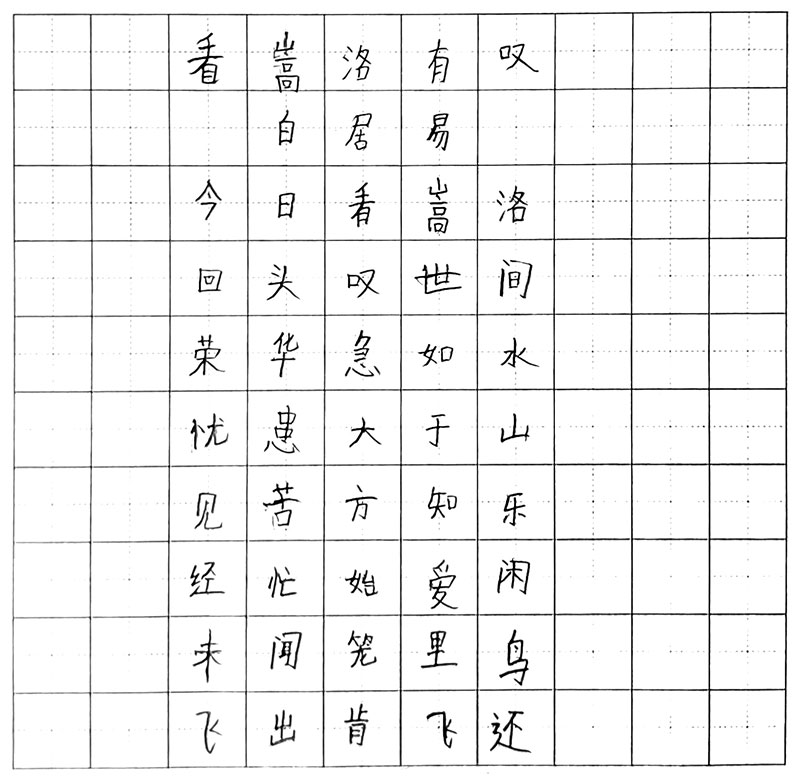 看嵩洛有叹
白居易
今日看嵩洛
回头叹世间
荣华急如水
忧患大于山
见苦方知乐
经忙始爱闲
未闻笼里鸟
飞出肯飞还